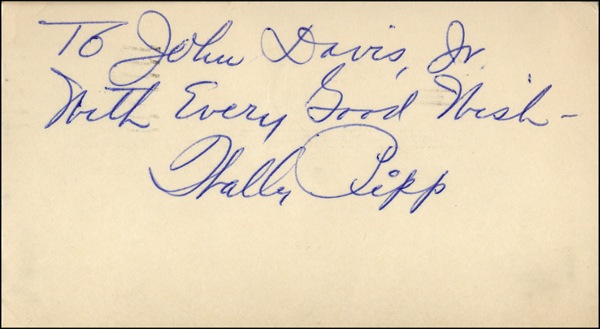 To John Davis, Jr.
With Every Good Wish-
Wally Pipp